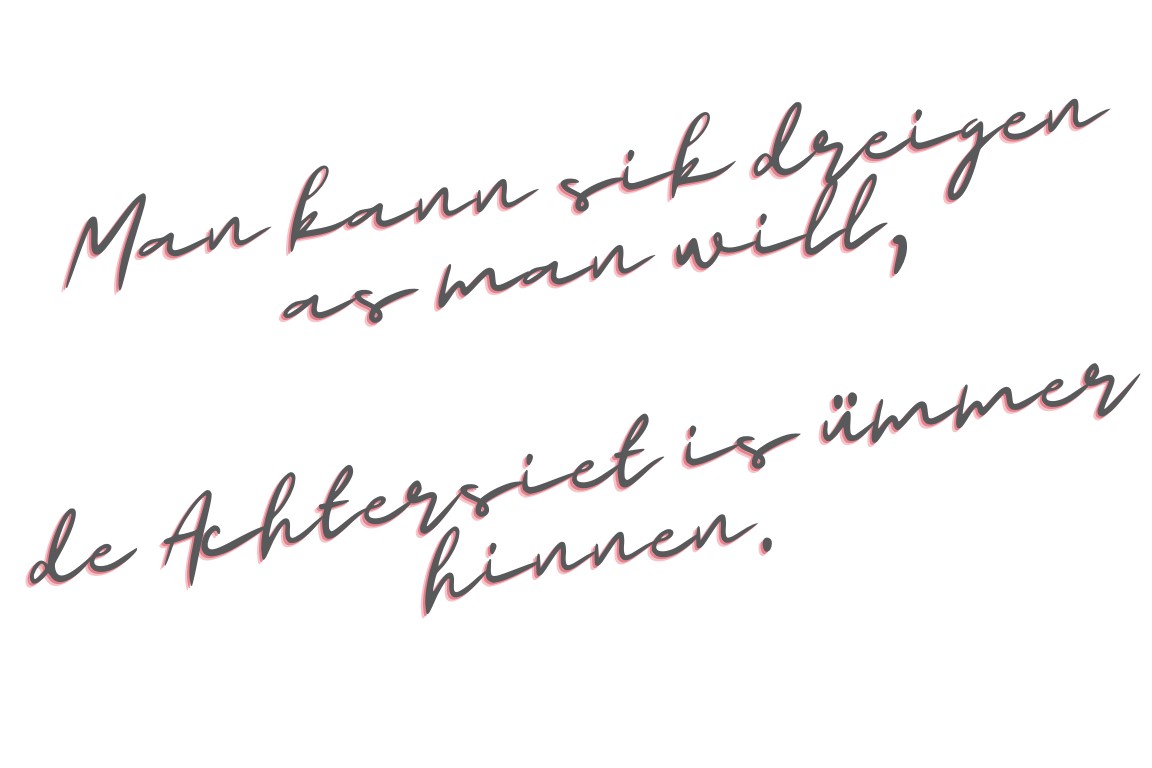 Man kann sik dreigen
as man will,
de Achtersiet is ümmer
hinnen.